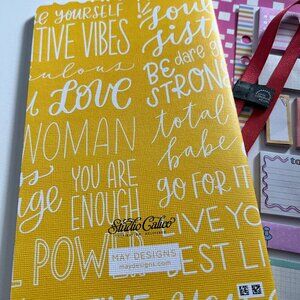 BE YOURSELF
soul
TIVE VIBES
sist
fabulous
BE dare
LOVE
STRONG
WOMAN
total
babe
YOU ARE
ENOUGH
GO FOR IT
Studio Calico
POWER
LIVE YO
MAY DESIGNS
maydesigns.com
BEST LI